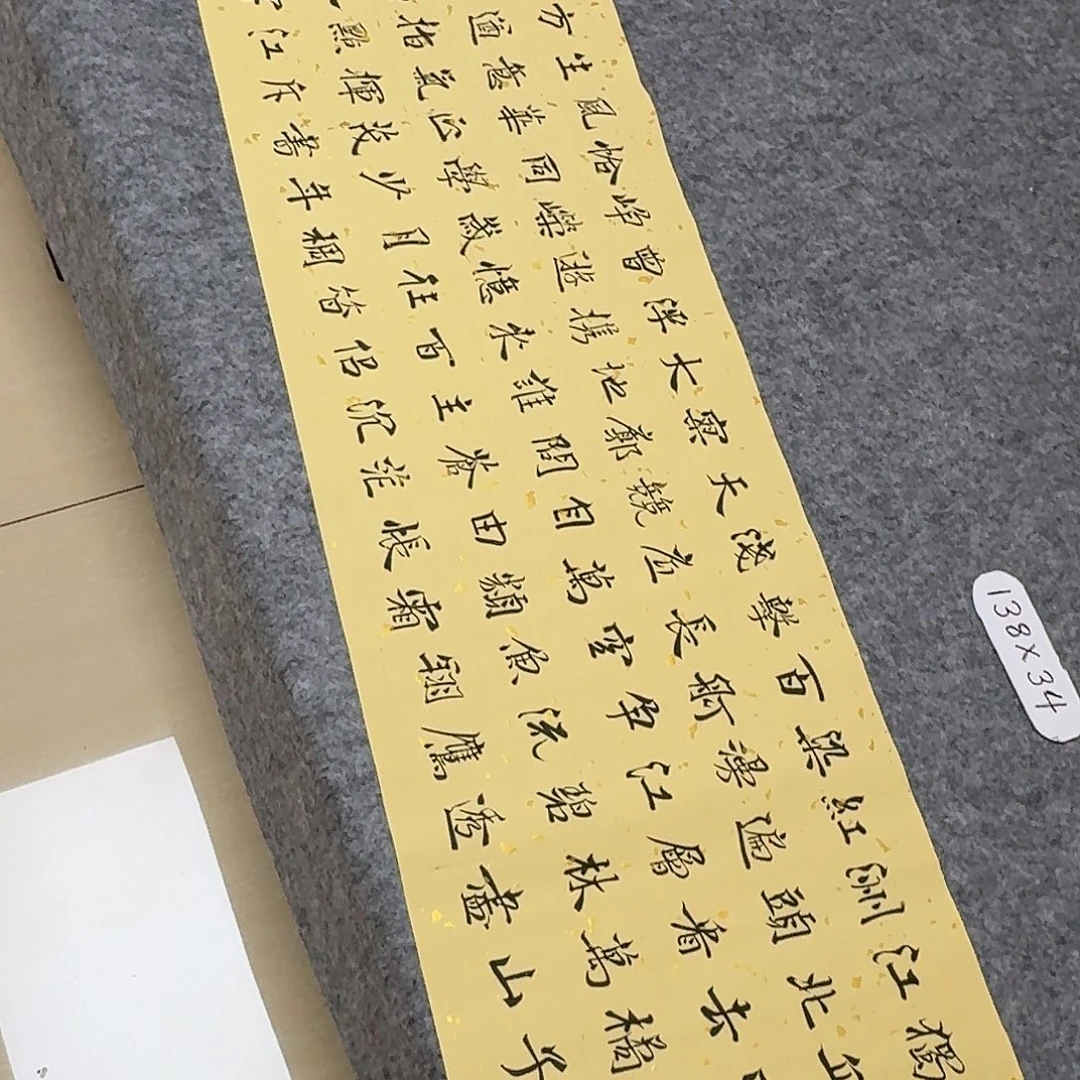 獨
江北去橘子
洲頭看萬山
紅遍層林盡
染漫江碧透
百舸爭流鷹
擊長空魚翔
淺底萬類霜
天競自由悵
寥廓問蒼茫
大地誰主沉
浮攜來百侶
曾遊憶往昔
崢嶸歲月稠
恰同學少年
風華正茂書
生意氣揮斥
方遒指點江
138×34